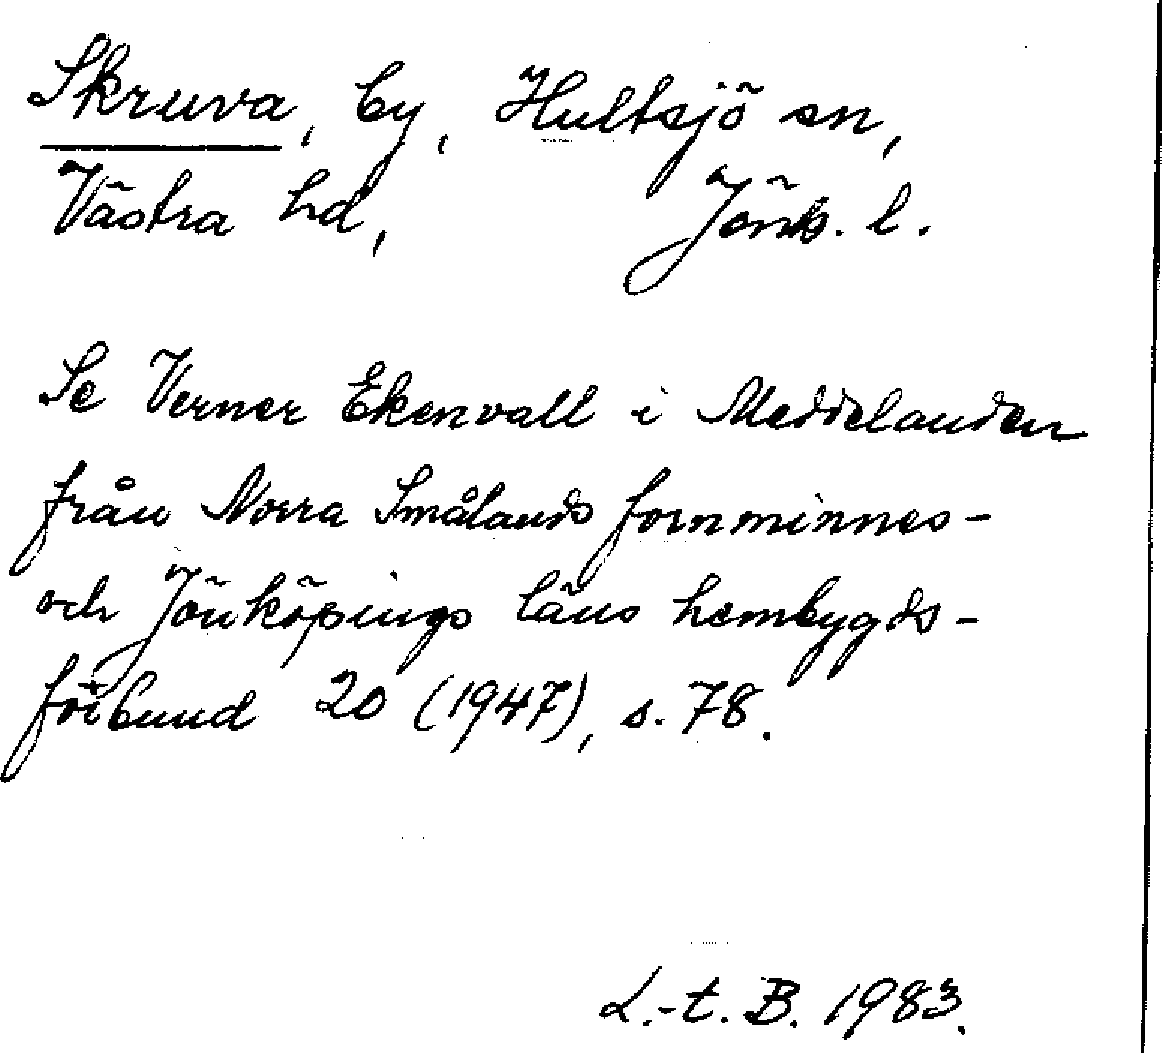 Skruva, by, Hultsjö sn,
Västra hd, Jönk. l.
Se Verner Ekenvall i Meddelanden
från Norra Smålands fornminnes-
och Jönköpings läns hembygds-
förbund 20 (1947), s. 78.
L.-t. B. 1983.